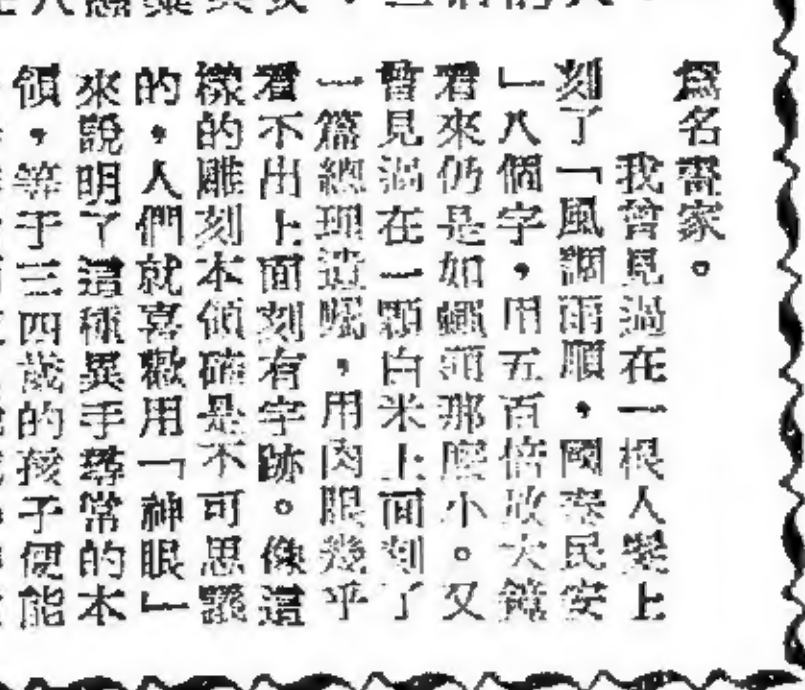 爲名書家。
我曾見過在一根人髮上
刻了「風調雨順，國泰民安
」八個字，用五百倍放大鏡
看來仍是如蠅頭那麽小。又
曾見過在一顆白米上面刻了
一篇總理遺囑，用肉眼幾乎
看不出上面刻有字跡。像這
樣的雕刻本領確是不可思議
的，人們就喜歡用「神眼」
來說明了這種異乎尋常的本
領，等于三四歲的孩子便能